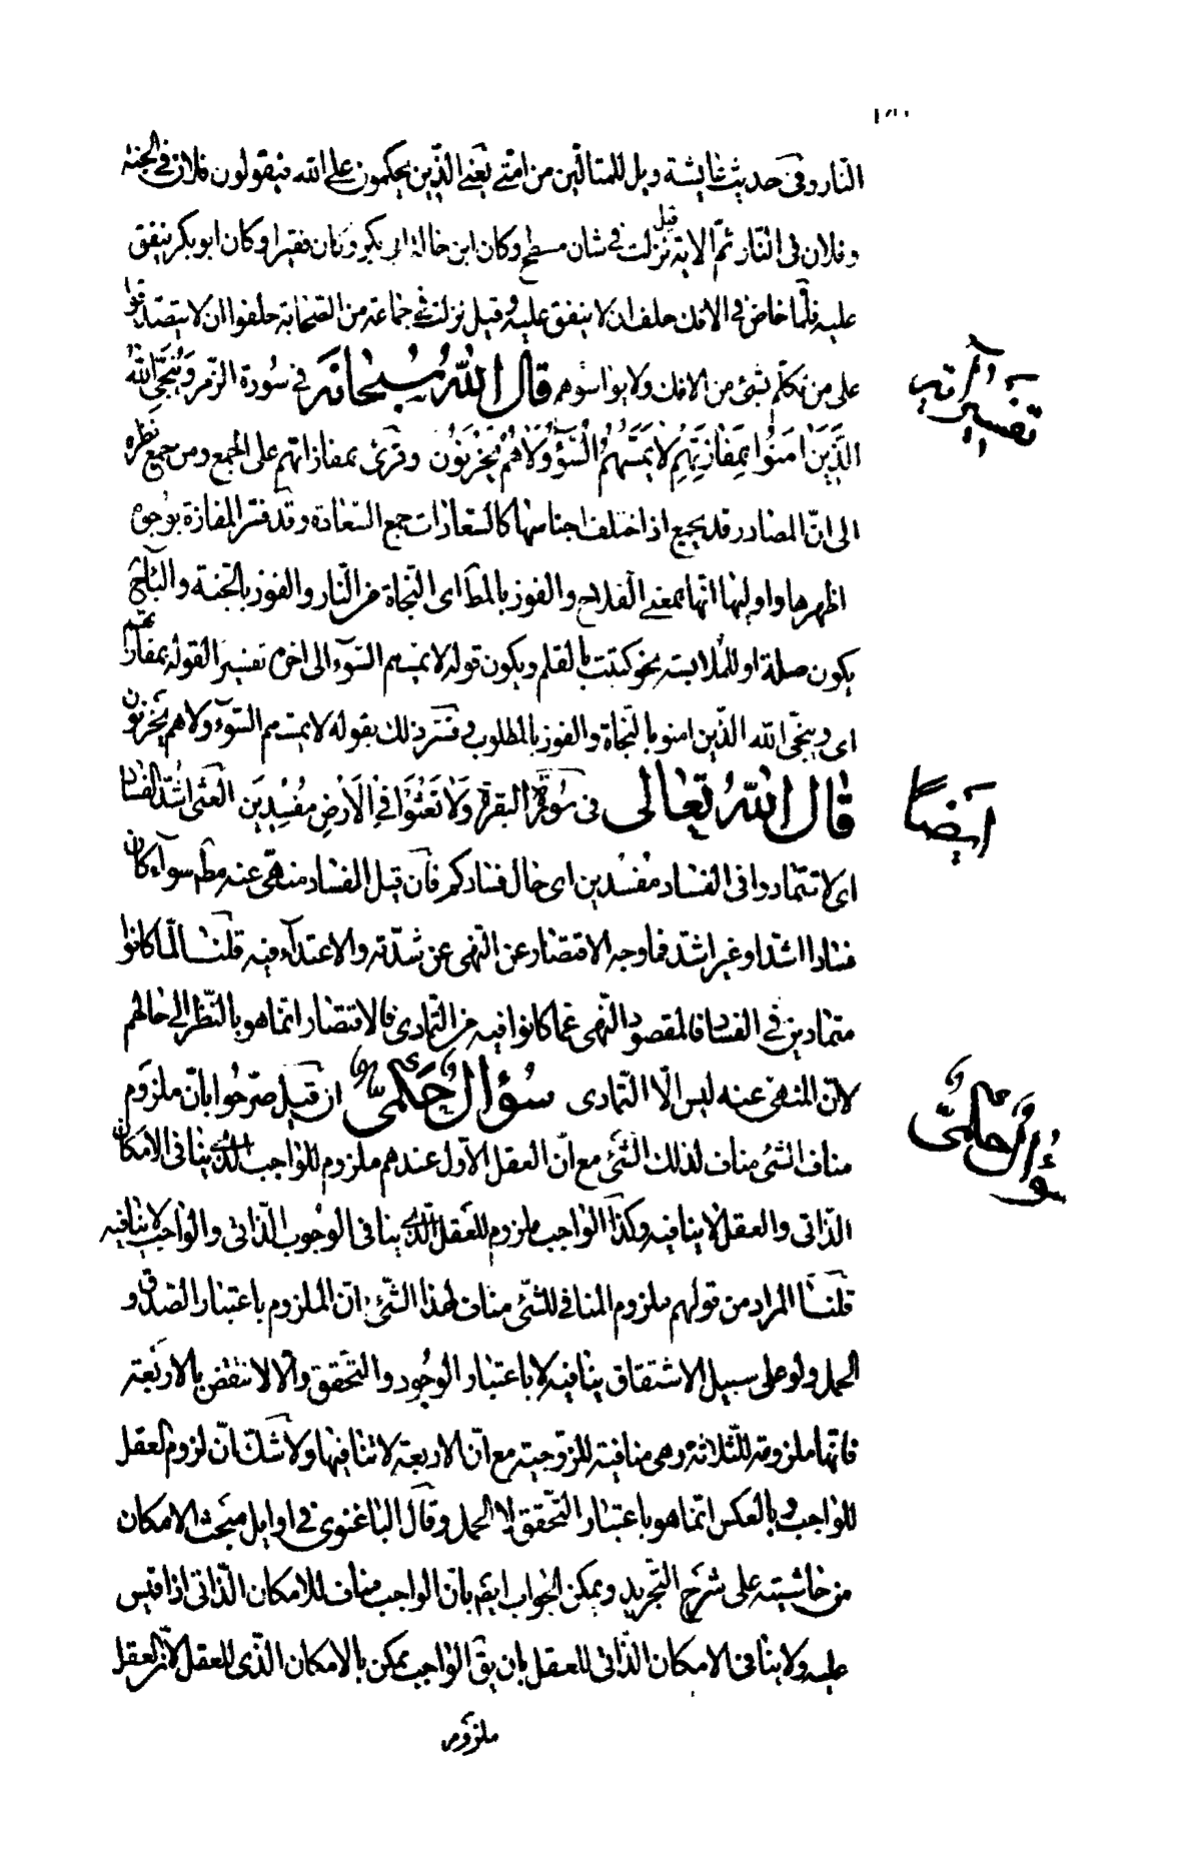 النار وفى حديث ثابشة ويل للمتألّين من امّتى يعنى الّذين يحكمون على الله فيقولون فلان فى الجنة
وفلان فى النّار ثمّ الاية قيل نزلت فى شان مسطح وكان ابن خالة ابى بكر وكان فقيرا وكان ابو بكر ينفق
عليه فلمّا خاض فى الافك حلف ان لا ينفق عليه وقيل نزلت فى جماعة من الصّحابة حلفوا ان لا يتصدّقوا
على من تكلّم بشئ من الافك ولا يواسوهم قال اللّه سبحانه فى سورة الزّمر وَيُنَجّى اللّهُ
الَّذينَ امَنُوا بِمَفازَتِهِم لا يَمَسُّهُمُ السُّوٓءُ وَلا هُم يَحزَنُون وقرئ بمفازاتهم على الجمع ومن جمع نظره
الى انّ المصادر قد يجمع اذا اختلف اجناسها كالسّعادات جمع السّعادة وقد فسّر المفازة بوجوه
اظهرها واولیها انّها بمعنى الفلاح والفوز بالمط اى النّجاة من النّار والفوز بالجنة والباء ح
يكون صلة او للملابسة نحو كتبت بالقلم ويكون قوله لا يمسهم السّوء الى اخره تفسيرا لقوله بمفازتهم
اى وينجّى الله الّذين امنو بالنّجاة والفوز بالمطلوب وفسّر ذلك بقوله لا يمسهم السّوء ولا هم يحزنون
قال اللّه تعالى فى سورة البقرة وَلا تَعثَوا فِى الاَرضِ مُفسِدينَ العثى اشدّ الفساد
اى لا تتمادوا فى الفساد مفسدين اى حال فسادكم فان قيل الفساد منهىّ عنه مط سواء كان
فسادا اشدّ او غير اشدّ فما وجه الاقتصار عن النهى عن شدّته والاعتداء فيه قلنا لمّا كانوا
متمادين فى الفساد فالمقصود النّهى عمّا كانوا فيه من التّمادى فالاقتصار انّما هو بالنّظر الى حالهم
لانّ المنهىّ عنه ليس الّا التّمادى سؤال حكمىّ ان قيل صرّحوا بانّ ملزوم
مناف الشئ مناف لذلك الشّئ مع انّ العقل الاوّل عندهم ملزوم للواجب الّذى ينافى الامكان
الذّاتى والعقل لا ينافيه وكذا الواجب ملزوم للعقل الّذى ينافى الوجوب الذّاتى والواجب لا ينافيه
قلنا المراد من قولهم ملزوم المنافى للشّئ مناف لهذا الشّئ انّ الملزوم باعتبار الصّدق و
الحمل ولو على سبيل الاشتقاق ينافيه لا باعتبار الوجود والتّحقق والّا لانتقض بالاربعة
فانّها ملزومة للثّلاثة وهى منافية للزّوجيّة مع انّ الاربعة لا تنافيها ولا شكّ انّ لزوم العقل
للواجب وبالعكس انّما هو باعتبار التّحقق لا الحمل وقال الباغنوى فى اوايل مبحث الامكان
من حاشيته على شرح التّجريد ويمكن الجواب ايضا بانّ الواجب مناف للامكان الذّاتى اذا قيس
عليه ولا ينافى الامكان الذّاتى للعقل بان يق الواجب ممكن بالامكان الّذى للعقل لانّ العقل
ملزوم
تفسير آية
ايضا
سؤال حكمىّ